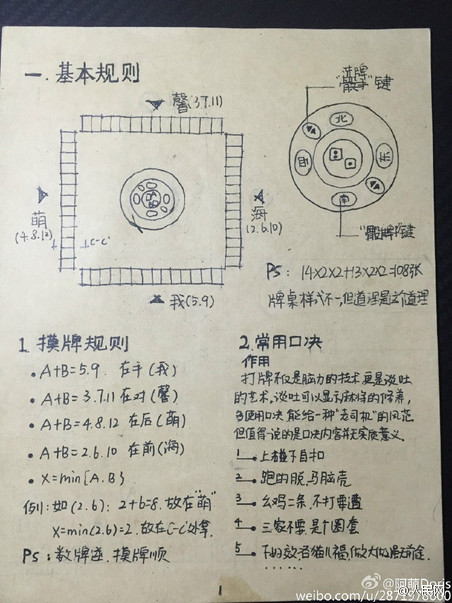 一.基本规则
馨(3.7.11)
萌
(4.8.12)
海
(2.6.10)
我(5.9)
C-C'
"洗牌"键
北
东
南
西
"骰牌"键
PS: 14×2×2+13×2×2=108张
牌桌样式不一,但道理是这个道理
1. 摸牌规则
• A+B=5.9. 在手(我)
• A+B=3.7.11 在对(馨)
• A+B=4.8.12 在后(萌)
• A+B=2.6.10 在前(海)
• X=min{A.B}
例:如(2.6): 2+6=8. 故在"萌"
X=min(2.6)=2. 故在C-C'处拿.
PS: 数牌逆.摸牌顺
2.常用口决
作用
打牌不仅是脑力的技术.更是谈吐
的艺术,谈吐可以显示麻将的修养,
多使用口决能给一种"老司机"的风范
但值得一说的是口决内容并无实质意义.
1 上碰下自扣
2 跑的脱,马脑壳
3 幺鸡二条,不打要遭
4 三家不要.是个圈套
5
......
1
@阿萌Doris
weibo.com/u/2874976800
人民网